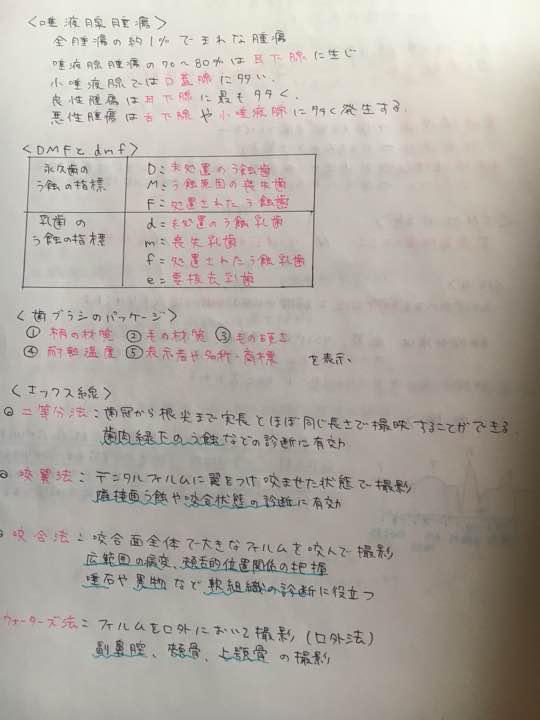 ＜唾液腺腫瘍＞
全腫瘍の約1%でまれな腫瘍
唾液腺腫瘍の70～80%は耳下腺に生じ
小唾液腺では口蓋腺に多い.
良性腫瘍は耳下腺に最も多く.
悪性腫瘍は舌下腺や小唾液腺に多く発生する.
＜DMFとdmf＞
永久歯のう蝕の指標
D：未処置のう蝕歯
M：う蝕原因の喪失歯
F：処置されたう蝕歯
乳歯のう蝕の指標
d＝未処置のう蝕乳歯
m＝喪失乳歯
f＝処置されたう蝕乳歯
e＝要抜去乳歯
＜歯ブラシのパッケージ＞
① 柄の材質 ② 毛の材質 ③ 毛の硬さ
④ 耐熱温度 ⑤ 表示者や名称・商標 を表示、
＜エックス線＞
二等分法：歯冠から根尖まで実長とほぼ同じ長さで撮映することができる.
歯肉縁下のう蝕などの診断に有効
咬翼法：デンタルフィルムに翼をつけ咬ませた状態で撮影
隣接面う蝕や咬合状態の診断に有効
咬合法：咬合面全体で大きなフィルムを咬んで撮影
広範囲の病変、頬舌的位置関係の把握
唾石や異物など軟組織の診断に役立つ
ウォーターズ法：フィルムを口外において撮影（口外法）
副鼻腔、頬骨、上顎骨の撮影